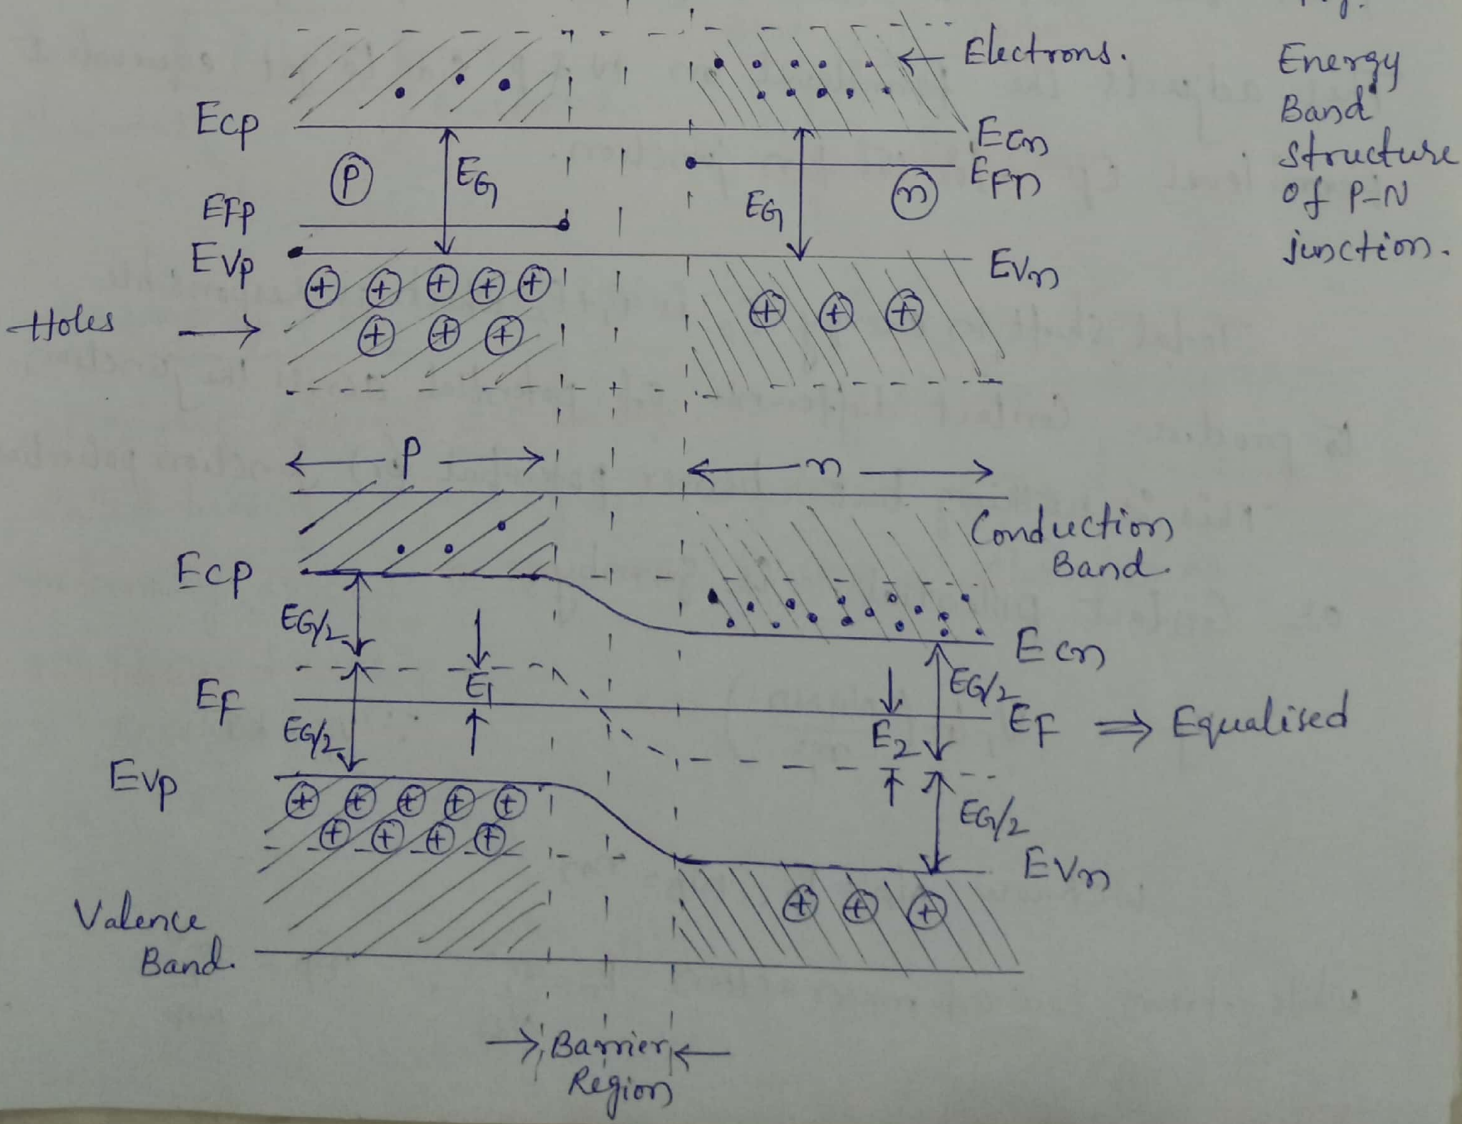 Electrons.
Energy
Band
structure
of P-N
junction.
Ecp
Ecn
EFn
P
EG
EG
n
EFp
Evp
Evn
Holes
P
n
Conduction
Band
Ecp
EG/2
Ecn
E1
EG/2
EF
EG/2
E2
EF ⇒ Equalised
Evp
EG/2
Evn
Valence
Band.
Barrier
Region